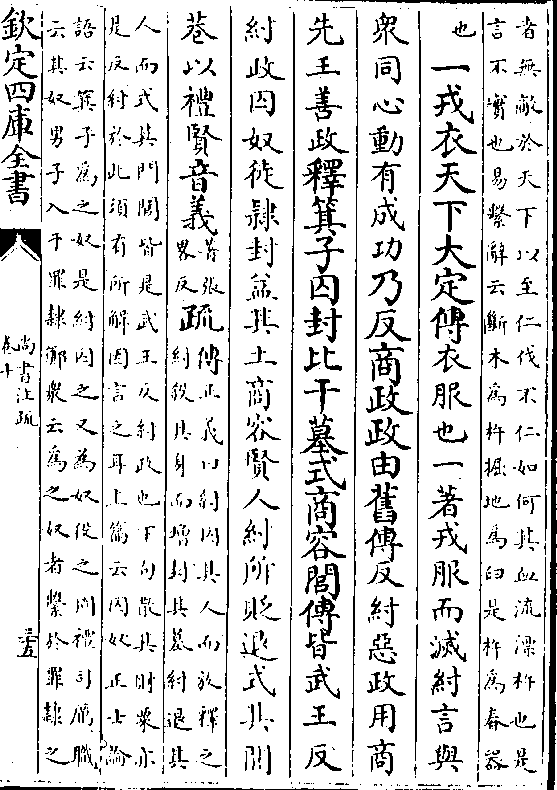 者無敵於天下以至仁伐不仁如何其血流漂杵也是
言不實也易繫辭云斷木為杵掘地為臼是杵為舂器
也
一戎衣天下大定傳衣服也一著戎服而滅紂言與
衆同心動有成功乃反商政政由舊傳反紂惡政用商
先王善政釋箕子囚封比干墓式商容閭傳皆武王反
紂政囚奴徒隸封益其土商容賢人紂所貶退式其閭
巷以禮賢音義
著張
略反
疏
傳正義曰紂囚其人而放釋之
紂殺其身而增封其墓紂退其
人而式其門閭皆是武王反紂政也下句散其財粟亦
是反紂於此須有所解因言之耳上篇云囚奴正士論
語云箕子為之奴是紂囚之又為奴役之周禮司厲職
云其奴男子入于罪隸鄭衆云為之奴者繫於罪隸之
欽定四庫全書
尚書注疏
卷十
三五